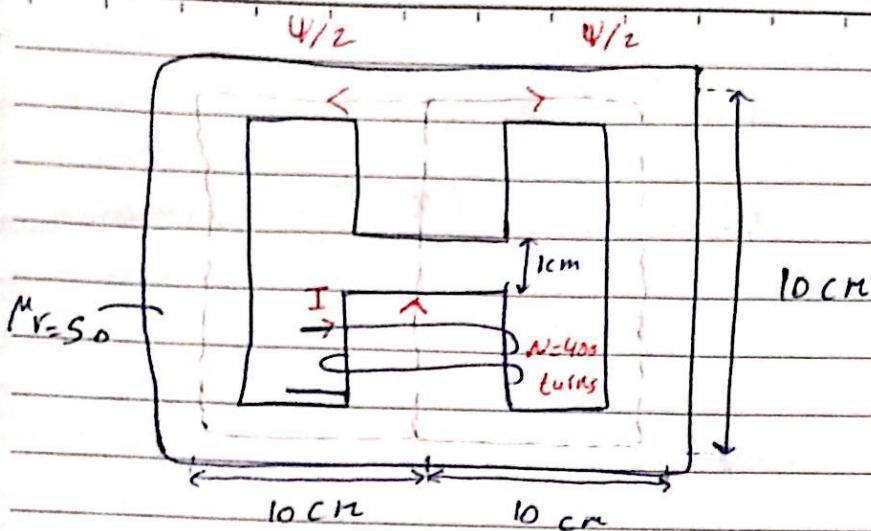 Ψ/2 Ψ/2
1cm
10 cm
I
μr=50
N=400
turns
10 cm 10 cm